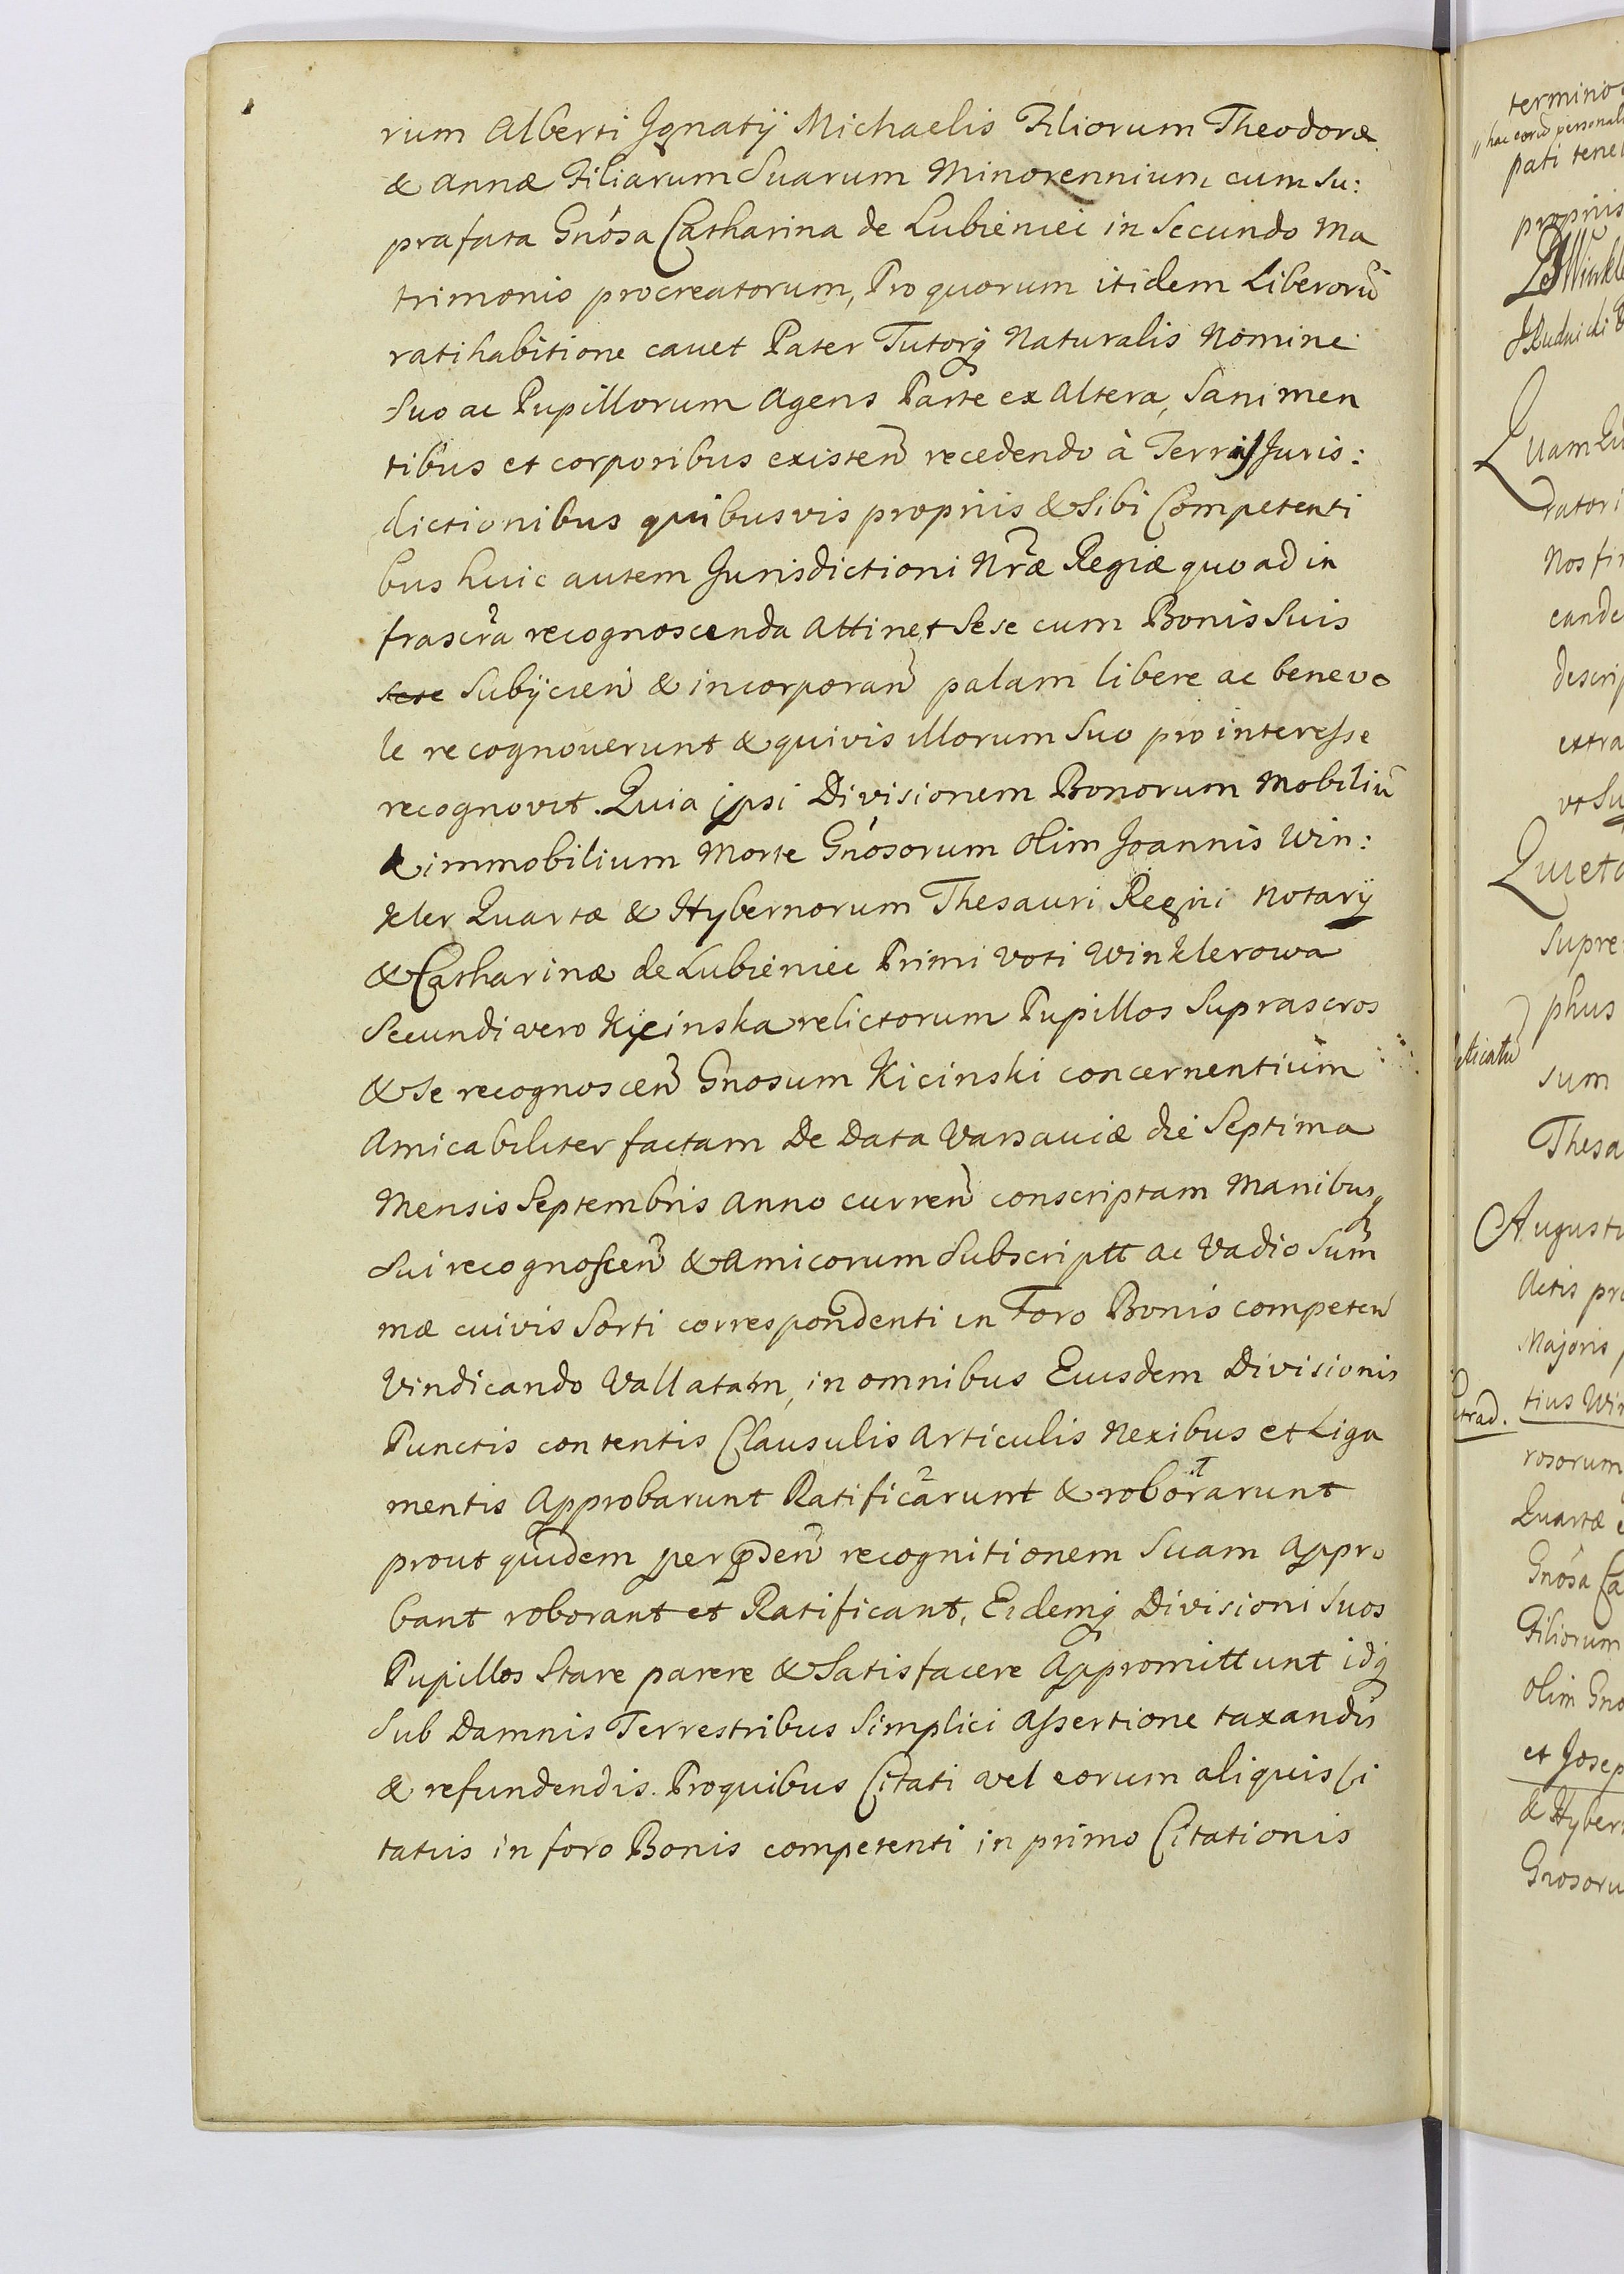 rium Alberti Ignatij Michaelis Filiorum Theodoræ
& Annæ Filiarum Suarum Minorennium cum Su:
prafata Gnosa Catharina de Lubieniec in Secundo Ma
trimonio procreatorum, Pro quorum itidem Liberorũ
ratihabitione cavet Pater Tutorq Naturalis Nomine
Suo ac Pupillorum Agens Parte ex Altera, Sani men
tibus et corporibus existeñ recedendo à Terris Juris:
dictionibus quibusvis propriis & Sibi Competenti
bus huic autem Jurisdictioni Nræ Regiæ quoad in
frascra recognoscenda Attinet Sese cum Bonis Suis
sese Subijcieñ & incorporañ palam libere ac benevo
le recognoverunt & quivis illorum Suo pro interesse
recognovit. Quia ipsi Divisionem Bonorum Mobiliũ
& immobilium Morte Gnosorum Olim Joannis Win:
kler Quartæ & Hybernorum Thesauri Regni Notarij
& Catharinæ de Lubieniec Primi Voti Winklerowa
Secundi vero Kicinska relictorum Pupillos Suprascros
& Se recognosceñ Gnosum Kicinski concernentium
Amicabiliter factam De Data Varsaviæ die Septima
Mensis Septembris Anno curreñ conscriptam Manibus
Sui recognosceñ & Amicorum Subscriptt ac Vadio Sum̃
mæ cuivis Sorti correspondenti in Foro Bonis competeñ
Vindicando Vallatam, in omnibus Eiusdem Divisionis
Punctis contentis Clausulis Articulis Nexibus et Liga
mentis Approbarunt Ratificarunt & roborarunt
prout quidem per pñdeñ recognitionem Suam Appro
bant roborant et Ratificant, Eidemq Divisioni Suos
Pupillos Stare parere & Satisfacere Appromittunt idq
Sub Damnis Terrestribus Simplici Assertione taxandis
& refundendis. Pro quibus Citati vel eorum aliquis Ci
tatus in foro Bonis competenti in primo Citationis